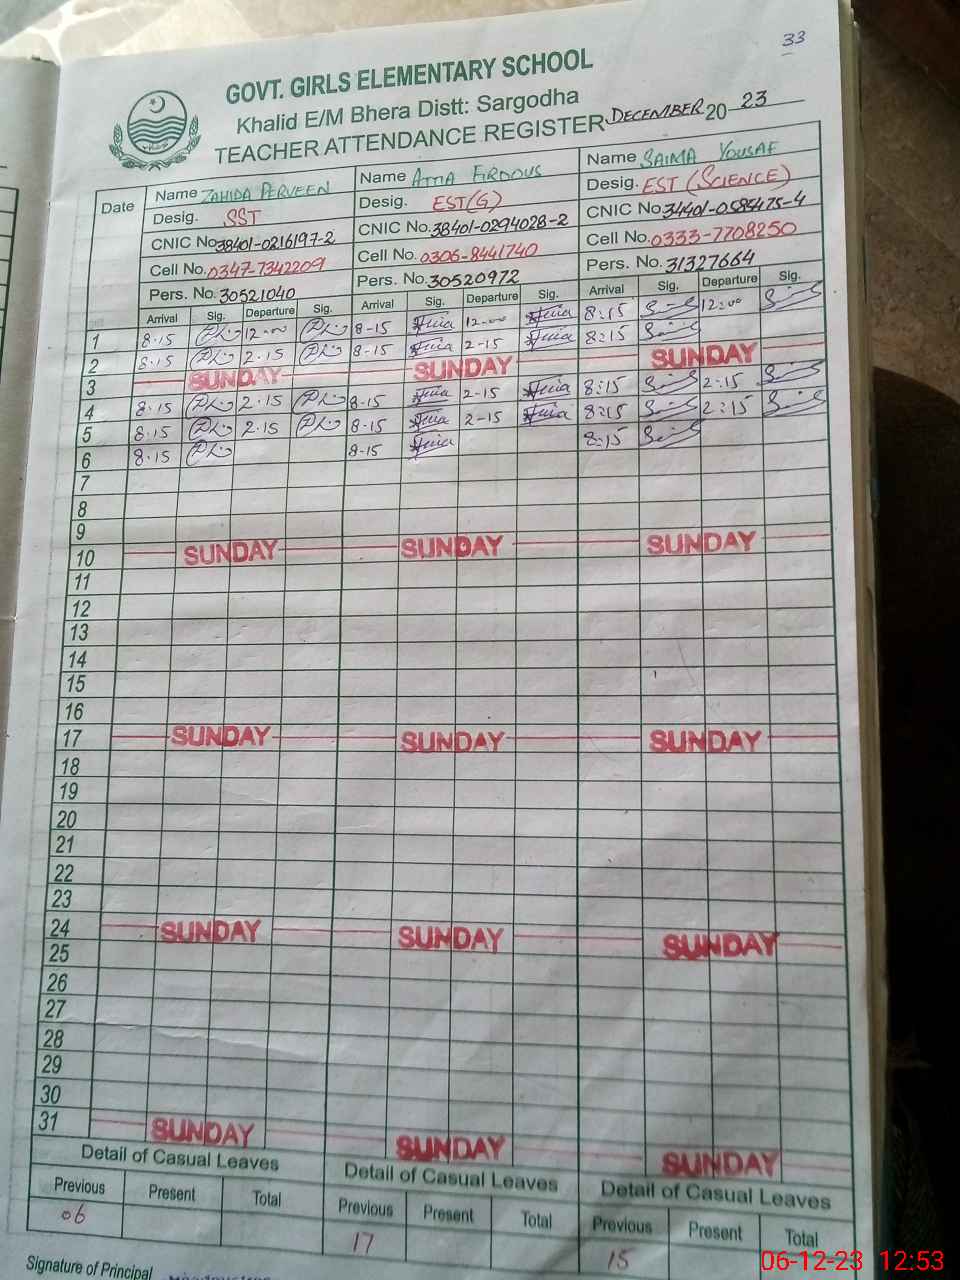 33
GOVT. GIRLS ELEMENTARY SCHOOL
Khalid E/M Bhera Distt: Sargodha
TEACHER ATTENDANCE REGISTER DECEMBER 20 23
Date Name ZAHIDA PERVEEN Name ATTIA FIRDOUS Name SAIMA YOUSAF
Desig. SST Desig. EST(G) Desig. EST (SCIENCE)
CNIC No. 38401-0216197-2 CNIC No. 38401-0294028-2 CNIC No. 34401-0585475-4
Cell No. 0347-7342209 Cell No. 0306-8441740 Cell No. 0333-7708250
Pers. No. 30521040 Pers. No. 30520972 Pers. No. 31327664
Arrival Sig. Departure Sig. Arrival Sig. Departure Sig. Arrival Sig. Departure Sig.
1 8.15 12-00 8-15 12-00 8:15 12:00
2 8.15 2.15 8-15 2-15 8:15
3 SUNDAY SUNDAY SUNDAY
4 8.15 2.15 8-15 2-15 8:15 2:15
5 8.15 2.15 8-15 2-15 8:15 2:15
6 8.15 8-15 8:15
7
8
9
10 SUNDAY SUNDAY SUNDAY
11
12
13
14
15
16
17 SUNDAY SUNDAY SUNDAY
18
19
20
21
22
23
24 SUNDAY SUNDAY SUNDAY
25
26
27
28
29
30
31 SUNDAY SUNDAY SUNDAY
Detail of Casual Leaves Detail of Casual Leaves Detail of Casual Leaves
Previous Present Total Previous Present Total Previous Present Total
06 17 15
Signature of Principal
06-12-23 12:53